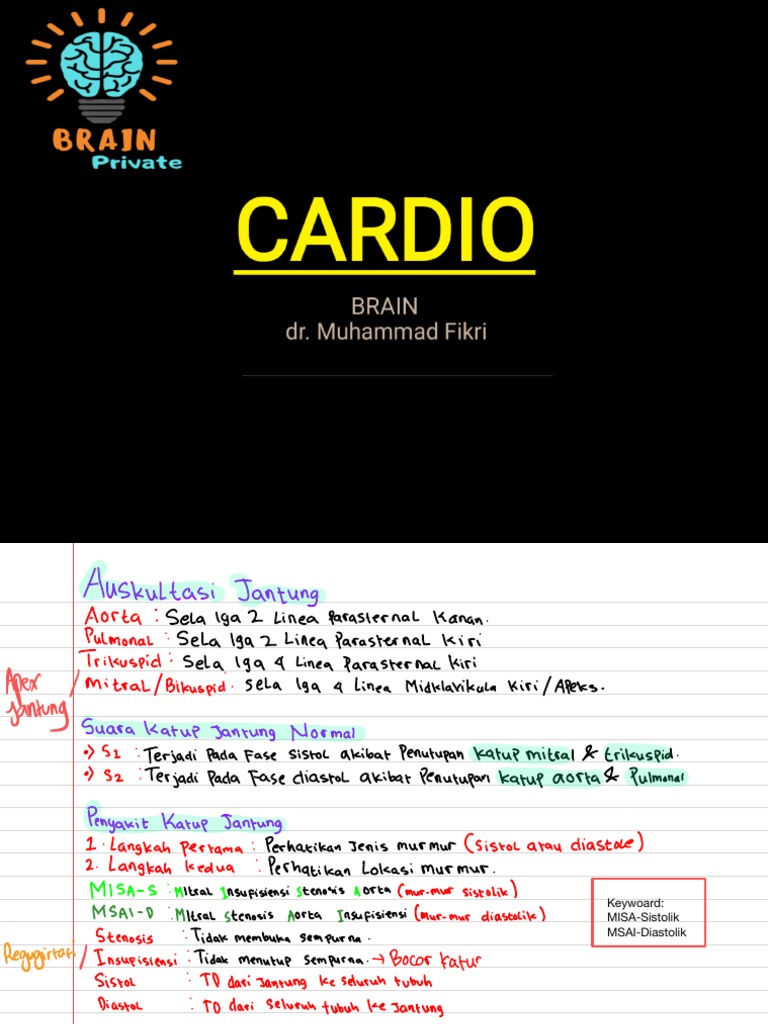 BRAIN
Private
CARDIO
BRAIN
dr. Muhammad Fikri
Auskultasi Jantung
Aorta : Sela Iga 2 Linea Parasternal Kanan.
Pulmonal : Sela Iga 2 Linea Parasternal Kiri
Trikuspid : Sela Iga 4 Linea Parasternal Kiri
Apex Jantung / Mitral/Bikuspid. Sela Iga 4 Linea Midklavikula Kiri/Apeks.
Suara Katup Jantung Normal
•) S1 : Terjadi Pada Fase sistol akibat Penutupan katup mitral & trikuspid.
•) S2 : Terjadi Pada Fase diastol akibat Penutupan katup aorta & Pulmonal
Penyakit Katup Jantung
1. Langkah Pertama : Perhatikan Jenis murmur (sistol atau diastole)
2. Langkah Kedua : Perhatikan Lokasi murmur.
MISA-S : Mitral Insufisiensi Stenosis Aorta (mur-mur sistolik)
MSAI-D : Mitral Stenosis Aorta Insufisiensi (mur-mur diastolik)
Keywoard:
MISA-Sistolik
MSAI-Diastolik
Stenosis : Tidak membuka sempurna.
Regugirtasi / Insufisiensi : Tidak menutup sempurna. → Bocor Katup
Sistol : TD dari Jantung ke seluruh tubuh
Diastol : TD dari seluruh tubuh ke Jantung